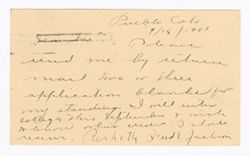 Pueblo Colo
9/15/1901
Please
send me by return
mail two or three
application blanks for
my standing. I will enter
college this September & wish
to know what credit I shall
receive. Resp'tly Jackson